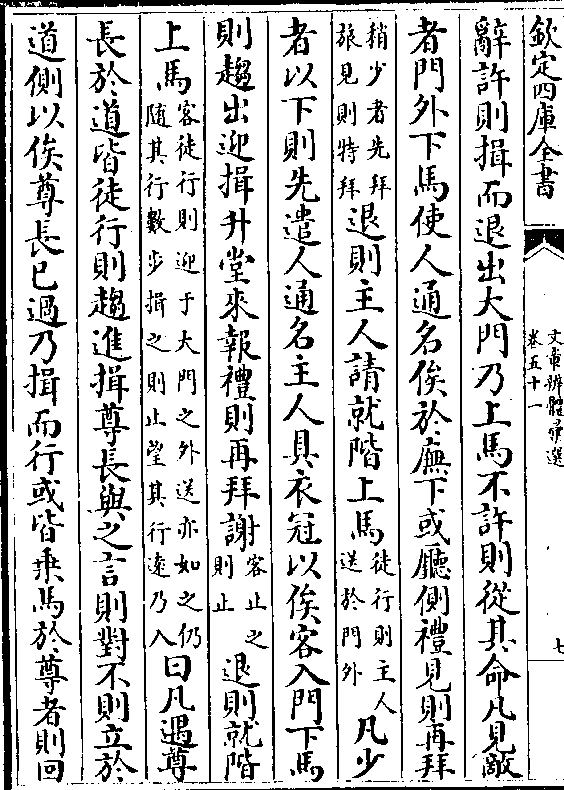 欽定四庫全書
文章辨體彚選
卷五十一
七
辭許則揖而退出大門乃上馬不許則從其命凡見敵
者門外下馬使人通名俟於廡下或廳側禮見則再拜
稍少者先拜
旅見則特拜
退則主人請就階上馬
徒行則主人
送於門外
凡少
者以下則先遣人通名主人具衣冠以俟客入門下馬
則趨出迎揖升堂來報禮則再拜謝
客止之
則止
退則就階
上馬
客徒行則迎于大門之外送亦如之仍
隨其行數步揖之則止望其行遠乃入
曰凡遇尊
長於道皆徒行則趨進揖尊長與之言則對不則立於
道側以俟尊長已過乃揖而行或皆乗馬於尊者則回